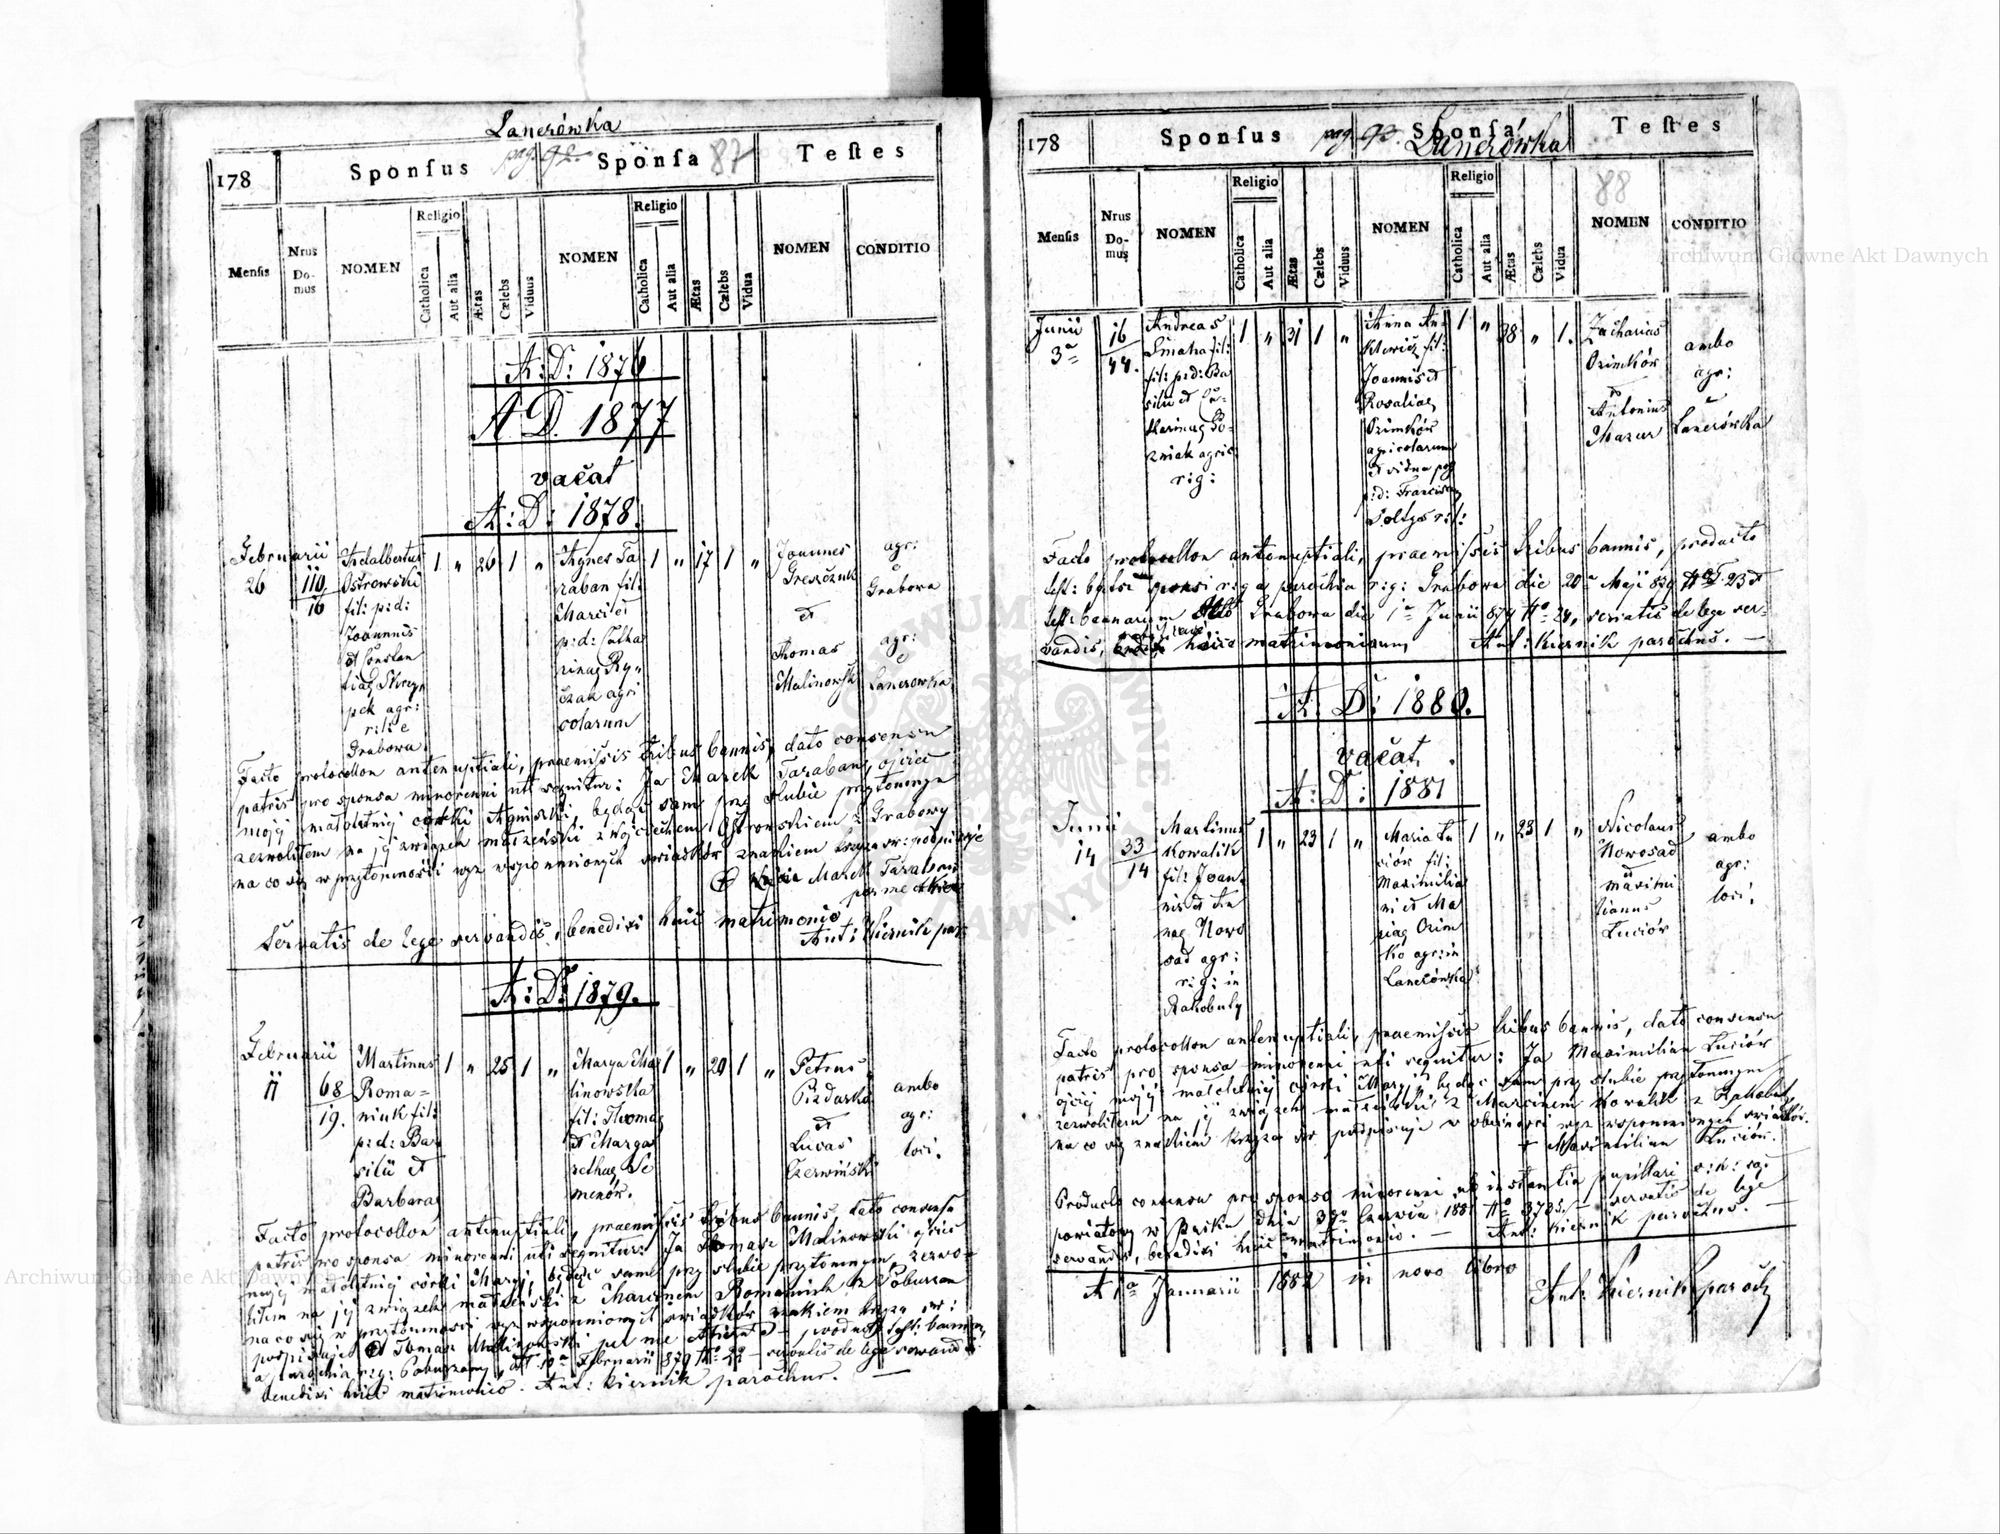 Lanerówka
pag. 92.
87
178 Sponſus Sponſa Teſtes
Menſis
Nrus Do- mus
NOMEN
Religio
Catholica
Aut alia
Ætas
Cælebs
Viduus
NOMEN
Religio
Catholica
Aut alia
Ætas
Cælebs
Vidua
NOMEN
CONDITIO
A: D: 1876
A D. 1877
vacat
A: D: 1878.
Februarii
26
110
16
Adalbertus
Ostrowski
fil: p:d:
Joannis
et Constan
tiae
agr:
r: l: e
Grabowa
1 " 26 1 "
Agnes Ta
raban fil:
Marci et
p:d: Catha
rinae Ry-
czak agri
colarum
1 " 17 1 "
Joannes
Greszczuk
et
Thomas
Malinowski
agr:
e
Grabowa
agr:
e
Lanerowka
Facto protocollon antenuptiali, praemissis tribus bannis, dato consensu
patris pro sponsa minorenni uti sequitur: Ja Marek Taraban, ojciec
mojej małoletniej córki Agniszki, będąc sam przy ślubie przytomnym
zezwoliłem na jej związek małżeński z Wojciechem Ostrowskiem z Grabowy
na co się w przytomności wyż wspomnionych świadków znakiem krzyża sw: podpisuje
Marek Taraban
per me
Servatis de lege servandis, benedixi huic matrimonio
Ant: Kiernik par:
A: D: 1879.
Februarii
11
68
19.
Martinus
Roma=
niuk fil:
p:d: Ba
silii et
Barbarae
1 " 25 1 "
Marya Ma
linowska
fil: Thomae
et Marga
rethae Se
menów.
1 " 20 1 "
Petrus
Piżdarski
et
Lucas
Czerwiński
ambo
agr:
loci.
Facto protocollon antenuptiali, praemissis tribus bannis dato consensu
patris pro sponsa minorenni uti sequitur: Ja Tomasz Malinowski ojciec
mojej małoletniej córki Maryi, będąc sam przy ślubie przytomnym, zezwo-
liłem na jej związek małżeński z Marcinem Romaniuk z Pobużan
na co się w przytomności wyż wspomnionych świadków znakiem krzyża sw:
podpisuje Tomasz Malinowski per me producto test: bannorum
a parochia r:g: Pobużany, Februarii 879 No 22 servatis de lege servandis
benedixi huic matrimonio. Ant: Kiernik parochus.
178 Sponſus pag. 92. Sponſa Teſtes
Lanerówka
88
Menſis
Nrus Do- mus
NOMEN
Religio
Catholica
Aut alia
Ætas
Cælebs
Viduus
NOMEN
Religio
Catholica
Aut alia
Ætas
Cælebs
Vidua
NOMEN
CONDITIO
Junii
3a
16
44.
Andreas
fil: p:d: Ba
silii et Ca-
tharinae Po-
zniak agric
r:g:
1 " 31 1 "
Anna An
fil:
Joannis et
Rosaliae
Ozimków
agricolarum
et vidua po
p:d: Francisci
Sołtys r:l:
1 " 38 " 1.
Zacharias
Ozimków
et
Antonius
Mazur
ambo
agr:
e
Lanerówka
Facto protocollon antenuptiali, praemissis tribus bannis, producto
test: bapt: sponsi r:g a parochia r:g: Grabowa die 20a Maji 879 No 23 et
test: bannorum Grabowa die 1a Junii 879 No 24, servatis de lege ser-
vandis, matrimonium Ant: Kiernik parochus.
A: D: 1880.
vacat.
A: D: 1881
Junii
14
33
14
Martinus
Kowalik
fil: Joan
nis et An
nae Nowo
sad agr:
r:g: in
Rakobuty
1 " 23 1 "
Maria Ku
ciów fil:
Maximilia
ni et Ma
riae Ozim
ko agr: in
Lanerówka
1 " 23 1 "
Nicolaus
Nowosad
et
Maximi
lianus
Kuciów
ambo
agr:
loci.
Facto protocollon antenuptiali, praemissis tribus bannis, dato consensu
patris pro sponsa minorenni uti sequitur: Ja Maximilian Kuciów
ojciec mojej małoletniej córki Maryi, będąc sam przy ślubie przytomnym
zezwoliłem na jej związek małżeński z Marcinem Kowalik z Rakobut
na co się znakiem krzyża sw: podpisuje w obecności wyż wspomnionych świadków.
+ Maximilian Kuciów.
Producto consensu pro sponso minorenni ab instantia pupillari c: k: sąd
powiatowy w Busku dnia Czerwca 1881 No 3735. servatis de lege
servandis, benedixi huic matrimonio. Ant: Kiernik parochus.
A 1a Januarii 1882 in novo libro
Ant: Kiernik paroch
Archiwum Główne Akt Dawnych
Archiwum Główne Akt Dawnych